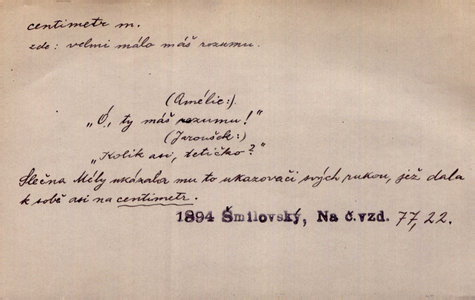 centimetr m.
zde: velmi málo máš rozumu.
(Amélie:).
„Ó, ty máš rozumu!"
(Jaroušek:)
„Kolik asi, tetičko?"
Slečna Mély ukázala mu to ukazováči svých rukou, jež dala
k sobě asi na centimetr.
1894 Šmilovský, Na č.vzd. 77,22.